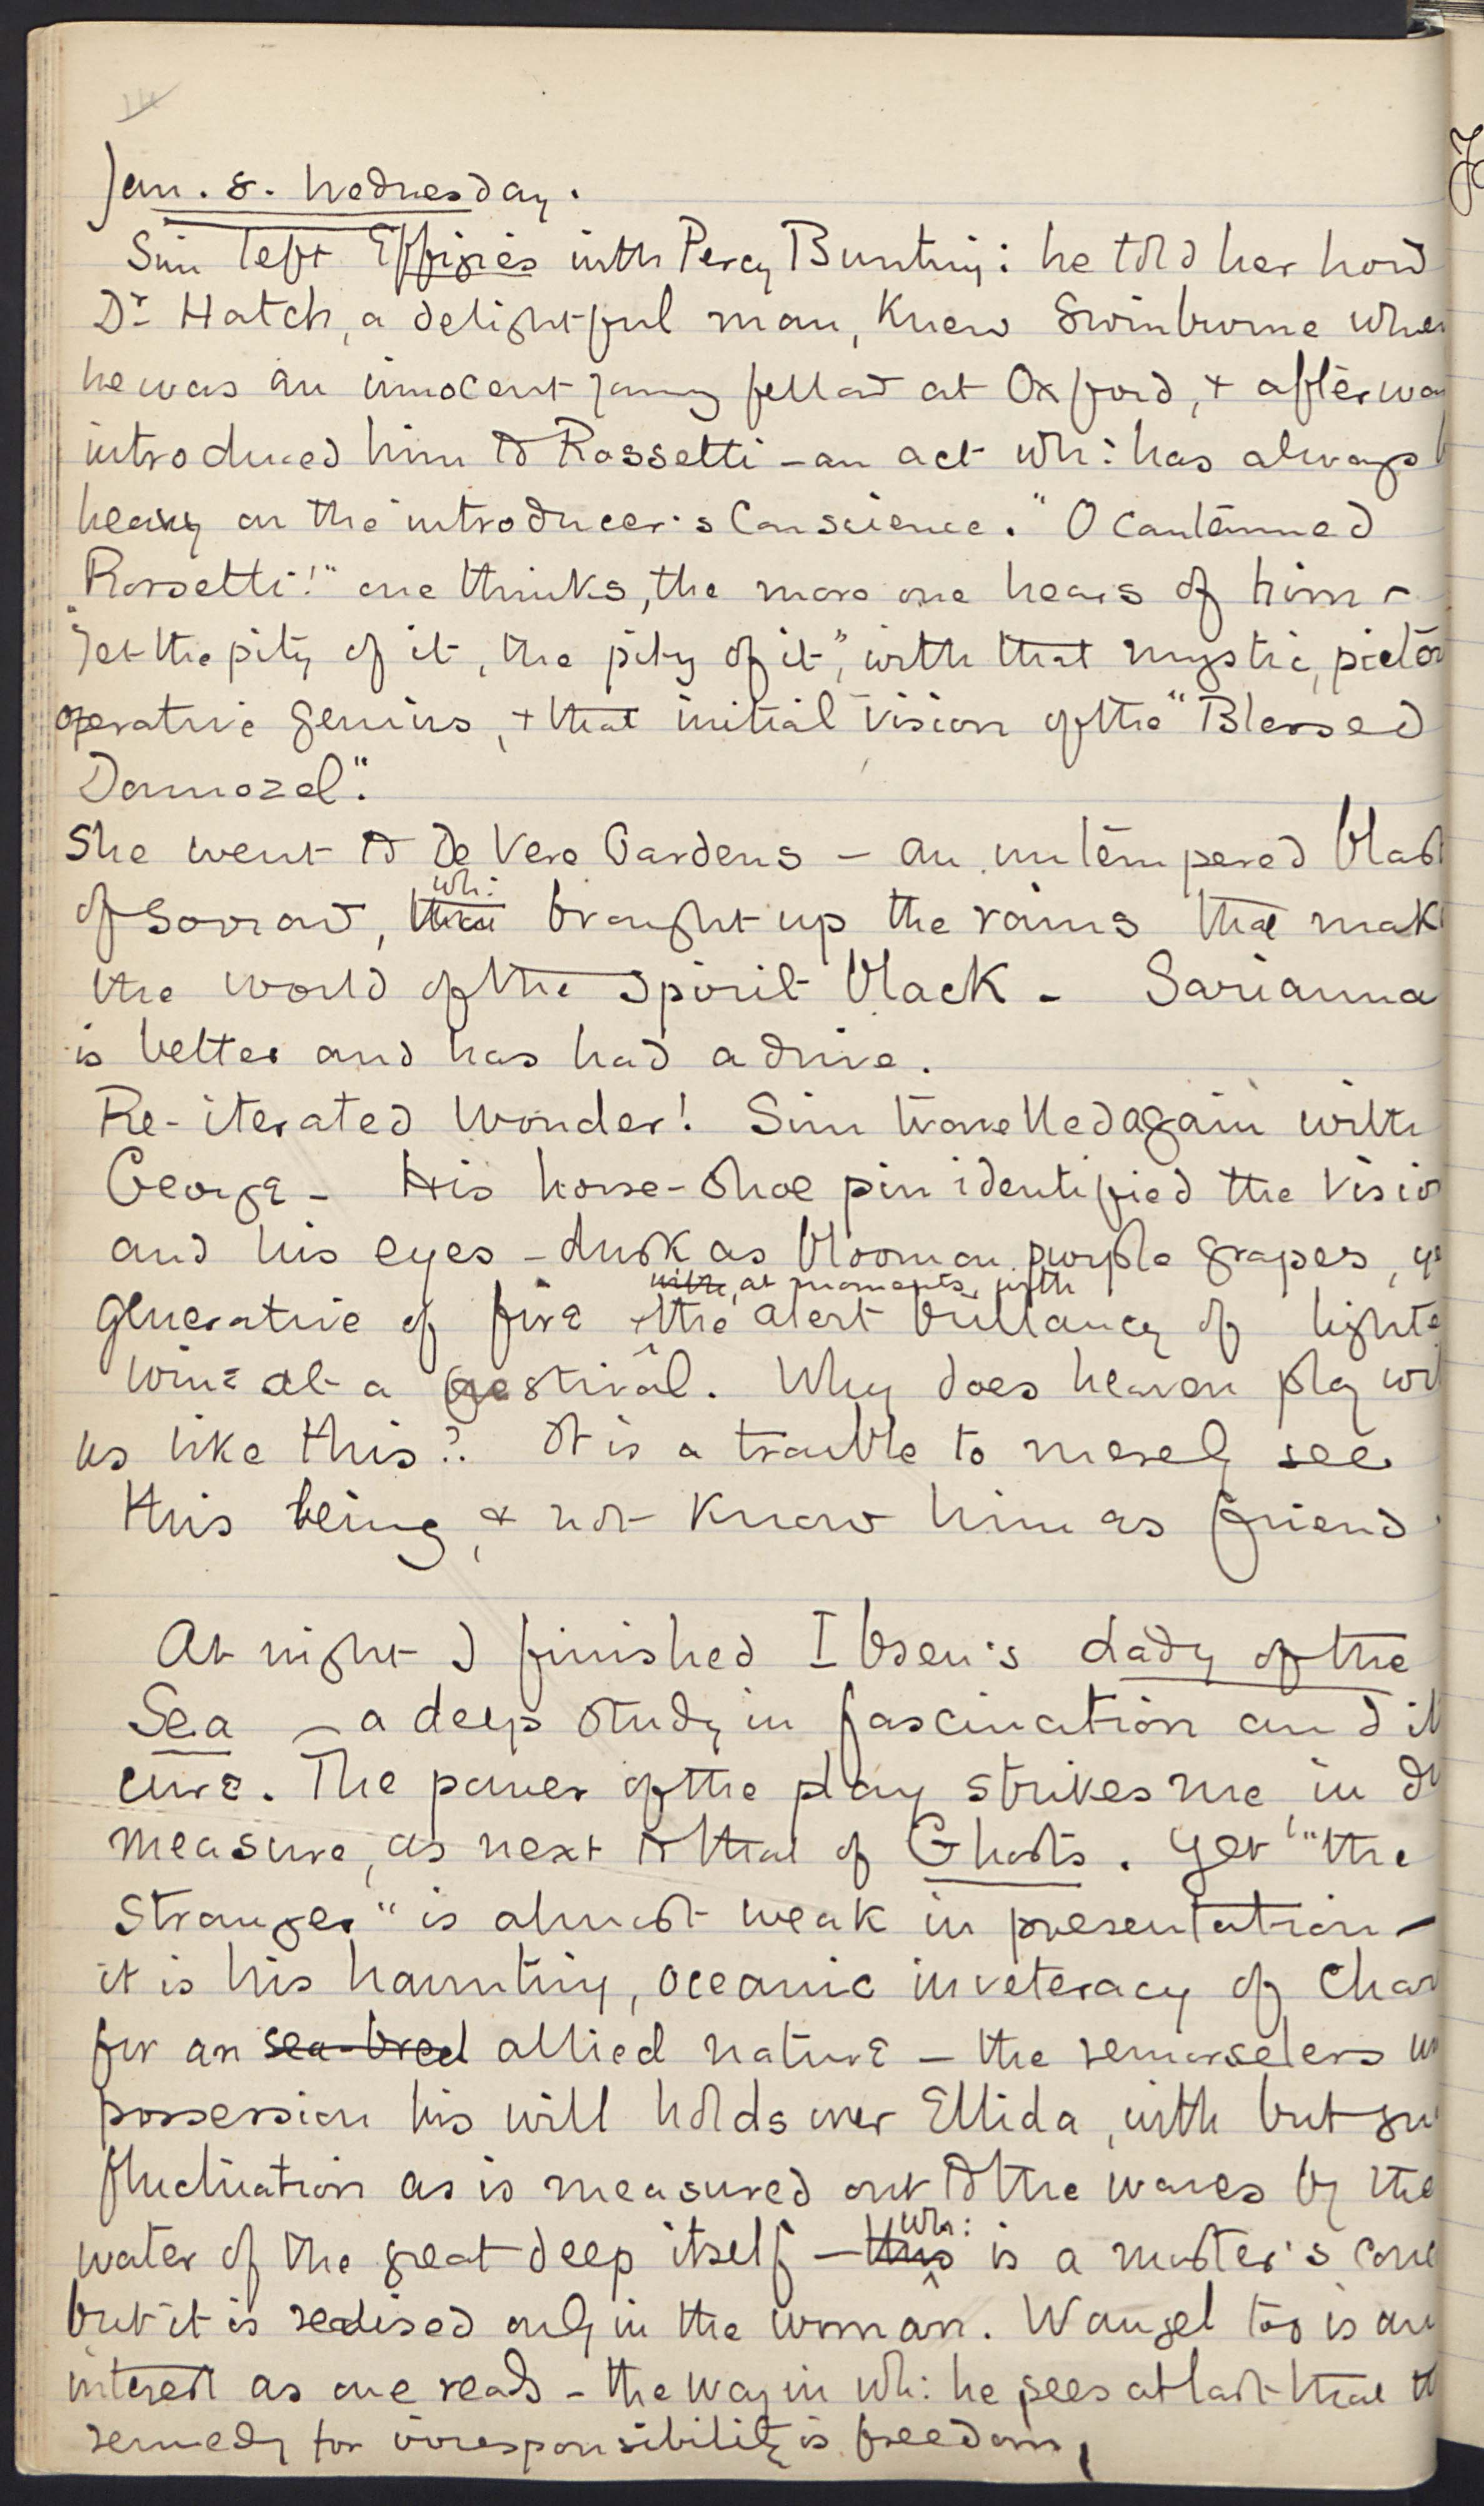 Jan. 8. Wednesday.
Sim left Effigies with Percy Bunting: he told her how
Dr Hatch, a delightful man, knew Swinburne when
he was an innocent young fellow at Oxford, & afterwa
introduced him to Rossetti – an act wh: has always
heavy on the introducer's conscience. "O contemned
Rossetti!" one thinks, the more one hears of him –
"yet the pity of it, the pity of it", with that mystic, pictor
operative genius, & that initial vision of the "Blessed
Damozel".
She went to De Vere Gardens – an untempered blast
of sorrow, that wh: brought up the rains that make
the world of the spirit black – Sarianna
is better and has had a drive.
Re-iterated Wonder! Sim travelled again with
George – His horse-shoe pin identified the visio
and his eyes – dusk as bloom on purple grapes,
generative of fire & with, at moments, with the alert brillancy of light
wine at a festival. Why does heaven play wi
us like this? It is a trouble to merely see
this being, & not know him as friend
At night I finished Ibsen's Lady of the
Sea – a deep study in fascination and it
cure. The power of the play strikes me, in
measure, as next to that of Ghosts. Yet "the
Stranger" is almost weak in presentation –
it is his haunting, oceanic inveteracy of char
for an sea-bred allied nature – the remorseless
possession his will holds over Ellida, with but su
fluctuation as is measured out to the waves by the
water of the great deep itself – this wh: is a master's conc
but it is realised only in the woman. Wangel too is an
interest as one reads – the way in wh: he sees at last that th
remedy for irresponsibility is freedom,